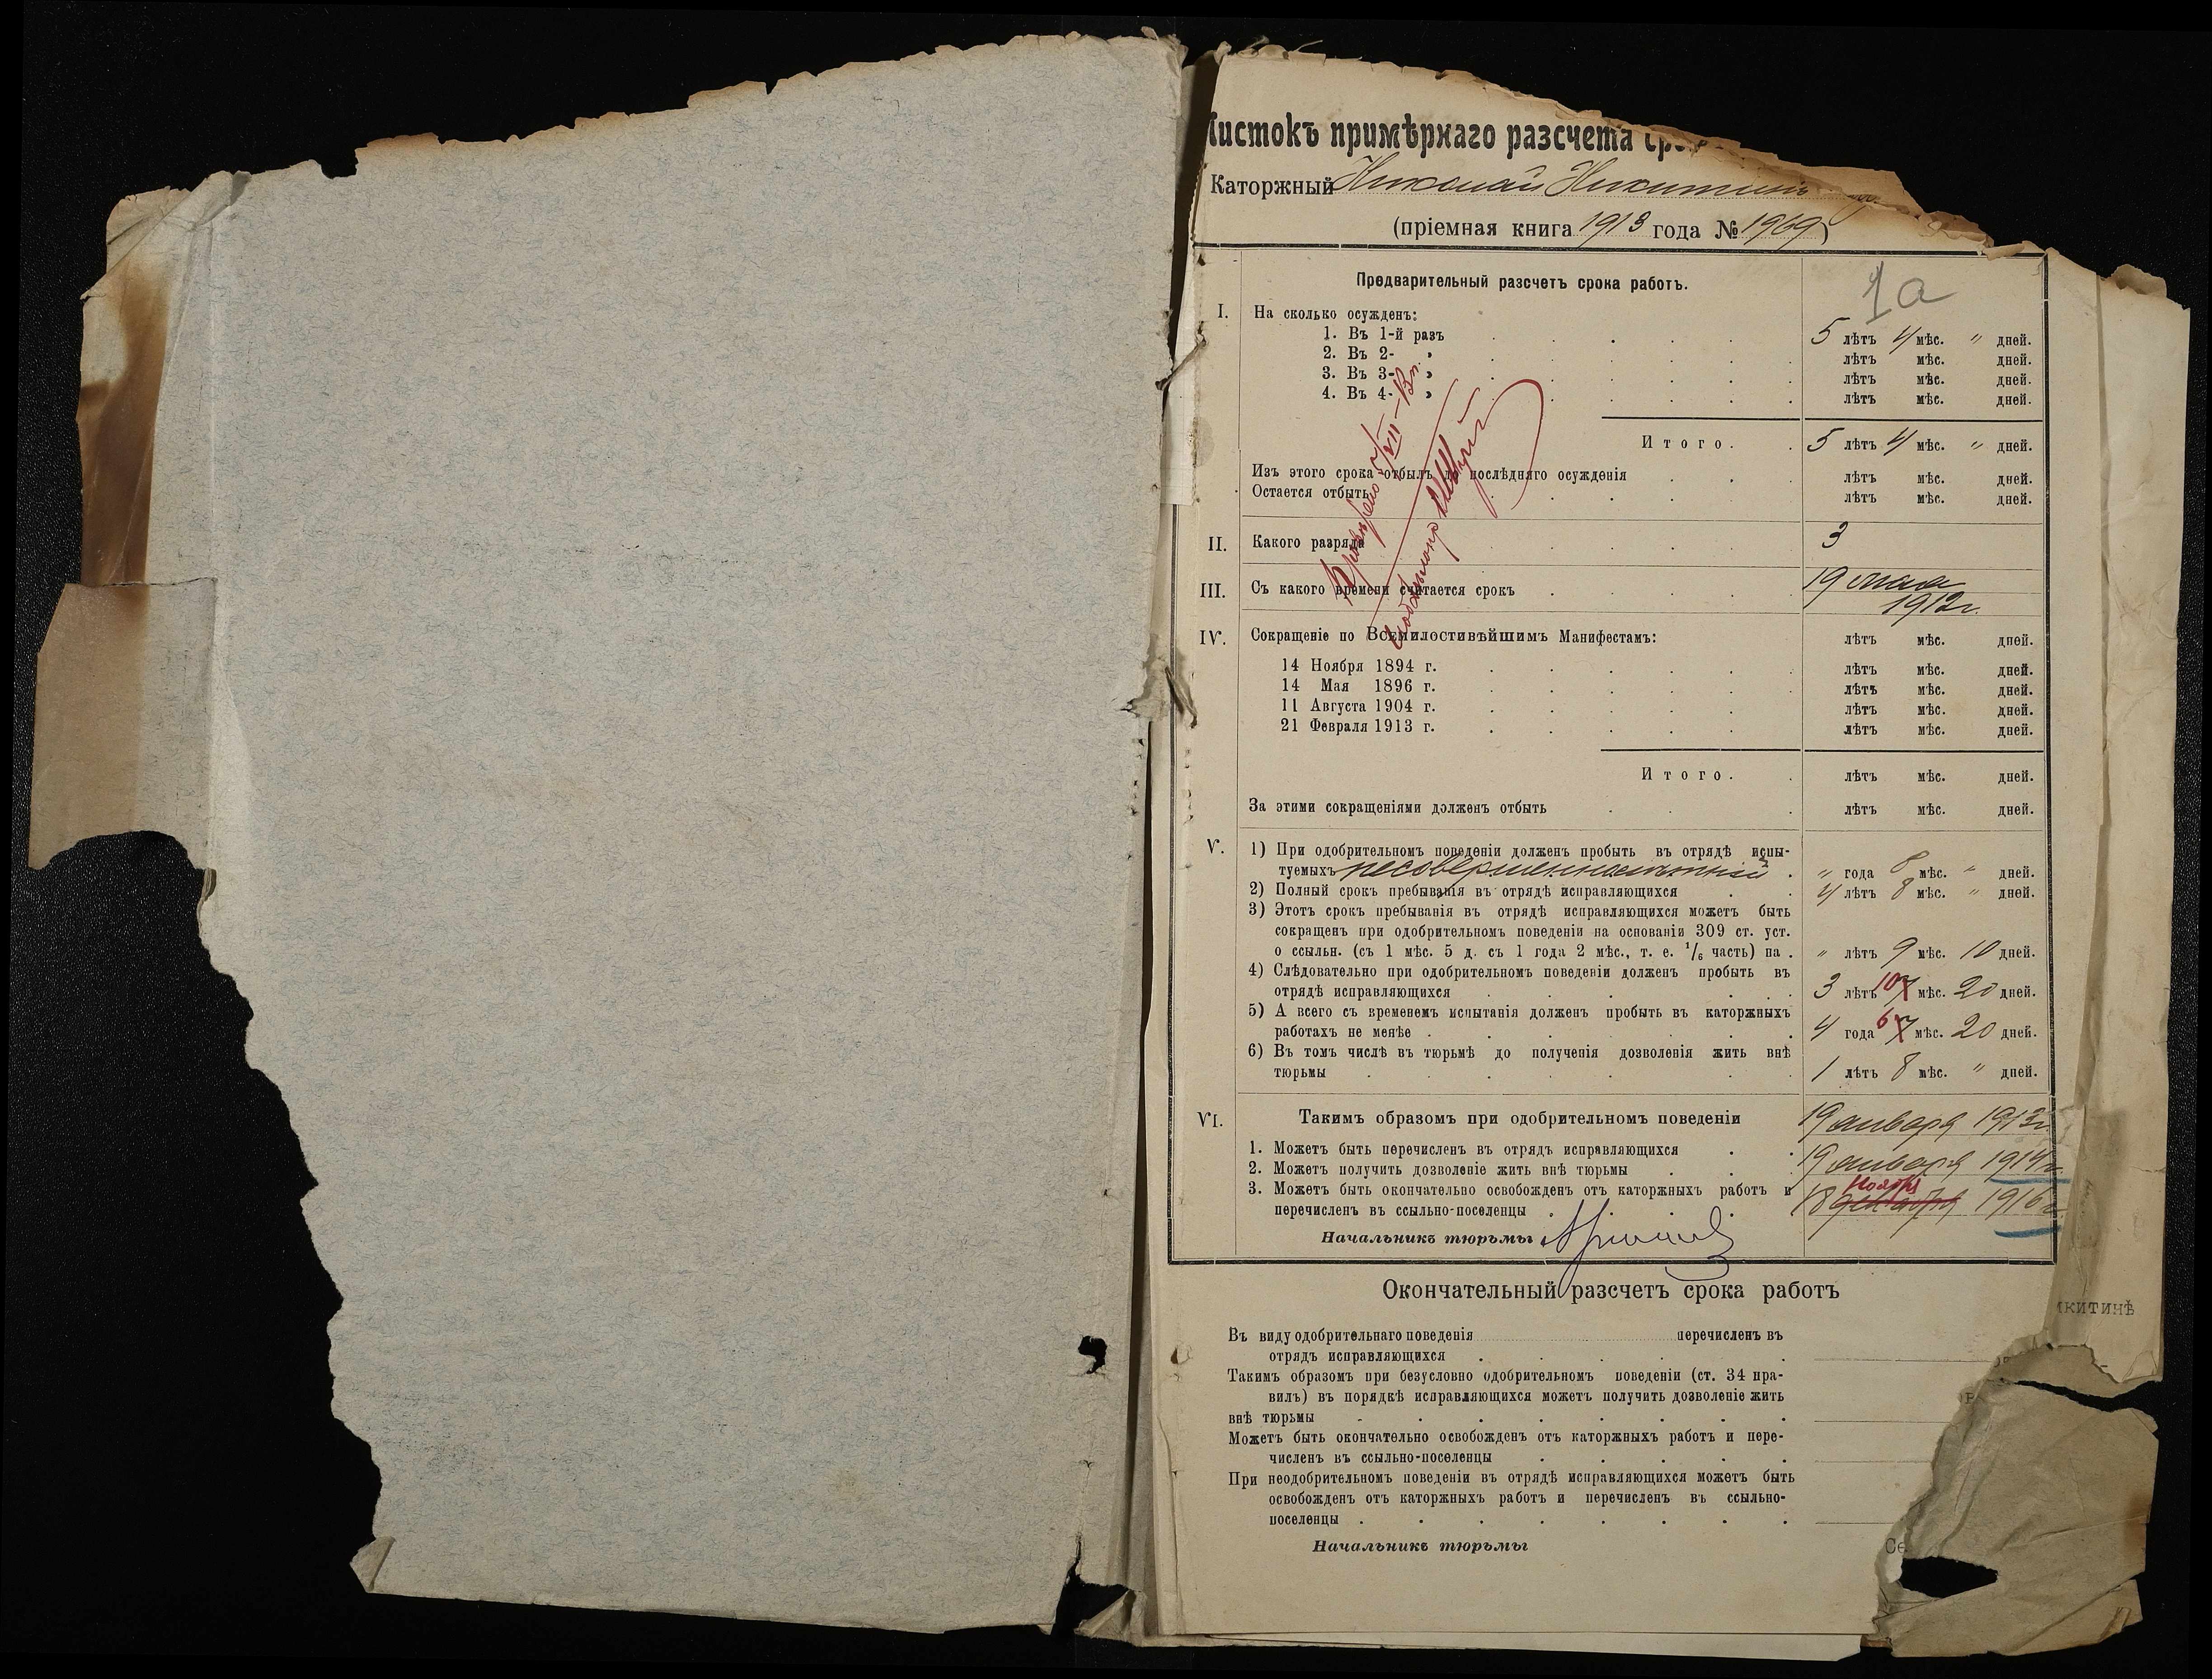 Листокъ примѣрнаго разсчета
Каторжный Николай Никитинъ
(пріемная книга 1913 года № 1969)
1а
Предварительный разсчетъ срока работъ.
I. На сколько осужденъ:
1. Въ 1-й разъ 5 лѣтъ 4 мѣс. " дней.
2. Въ 2- " лѣтъ мѣс. дней.
3. Въ 3- " лѣтъ мѣс. дней.
4. Въ 4- " лѣтъ мѣс. дней.
Итого. 5 лѣтъ 4 мѣс. " дней.
Изъ этого срока отбылъ до послѣдняго осужденія лѣтъ мѣс. дней.
Остается отбыть лѣтъ мѣс. дней.
II. Какого разряда 3
III. Съ какого времени считается срокъ 19 мая
1912 г.
IV. Сокращеніе по Всемилостивѣйшимъ Манифестамъ: лѣтъ мѣс. дней.
14 Ноября 1894 г. лѣтъ мѣс. дней.
14 Мая 1896 г. лѣтъ мѣс. дней.
11 Августа 1904 г. лѣтъ мѣс. дней.
21 Февраля 1913 г. лѣтъ мѣс. дней.
Итого. лѣтъ мѣс. дней.
За этими сокращеніями долженъ отбыть лѣтъ мѣс. дней.
V. 1) При одобрительномъ поведеніи долженъ пробыть въ отрядѣ испы-
туемыхъ несовершеннолѣтній " года 8 мѣс. " дней.
2) Полный срокъ пребыванія въ отрядѣ исправляющихся 4 лѣтъ 8 мѣс. " дней.
3) Этотъ срокъ пребыванія въ отрядѣ исправляющихся можетъ быть
сокращенъ при одобрительномъ поведеніи на основаніи 309 ст. уст.
о ссыльн. (съ 1 мѣс. 5 д. съ 1 года 2 мѣс., т. е. 1/6 часть) на . " лѣтъ 9 мѣс. 10 дней.
4) Слѣдовательно при одобрительномъ поведеніи долженъ пробыть въ
отрядѣ исправляющихся 3 лѣтъ 10 мѣс. 20 дней.
5) А всего съ временемъ испытанія долженъ пробыть въ каторжныхъ
работахъ не менѣе 4 года 6 7 мѣс. 20 дней.
6) Въ томъ числѣ въ тюрьмѣ до полученія дозволенія жить внѣ
тюрьмы 1 лѣтъ 8 мѣс. " дней.
VI. Такимъ образомъ при одобрительномъ поведеніи
1. Можетъ быть перечисленъ въ отрядъ исправляющихся 19 января 1913 г.
2. Можетъ получить дозволеніе жить внѣ тюрьмы 19 января 1914 г.
3. Можетъ быть окончательно освобожденъ отъ каторжныхъ работъ и
перечисленъ въ ссыльно-поселенцы 18 декабря ноября 1916 г.
Начальникъ тюрьмы
Окончательный разсчетъ срока работъ
Въ виду одобрительнаго поведенія перечисленъ въ
отрядъ исправляющихся
Такимъ образомъ при безусловно одобрительномъ поведеніи (ст. 34 пра-
вилъ) въ порядкѣ исправляющихся можетъ получить дозволеніе жить
внѣ тюрьмы
Можетъ быть окончательно освобожденъ отъ каторжныхъ работъ и пере-
численъ въ ссыльно-поселенцы
При неодобрительномъ поведеніи въ отрядѣ исправляющихся можетъ быть
освобожденъ отъ каторжныхъ работъ и перечисленъ въ ссыльно-
поселенцы
Начальникъ тюрьмы
икитинѣ
Се